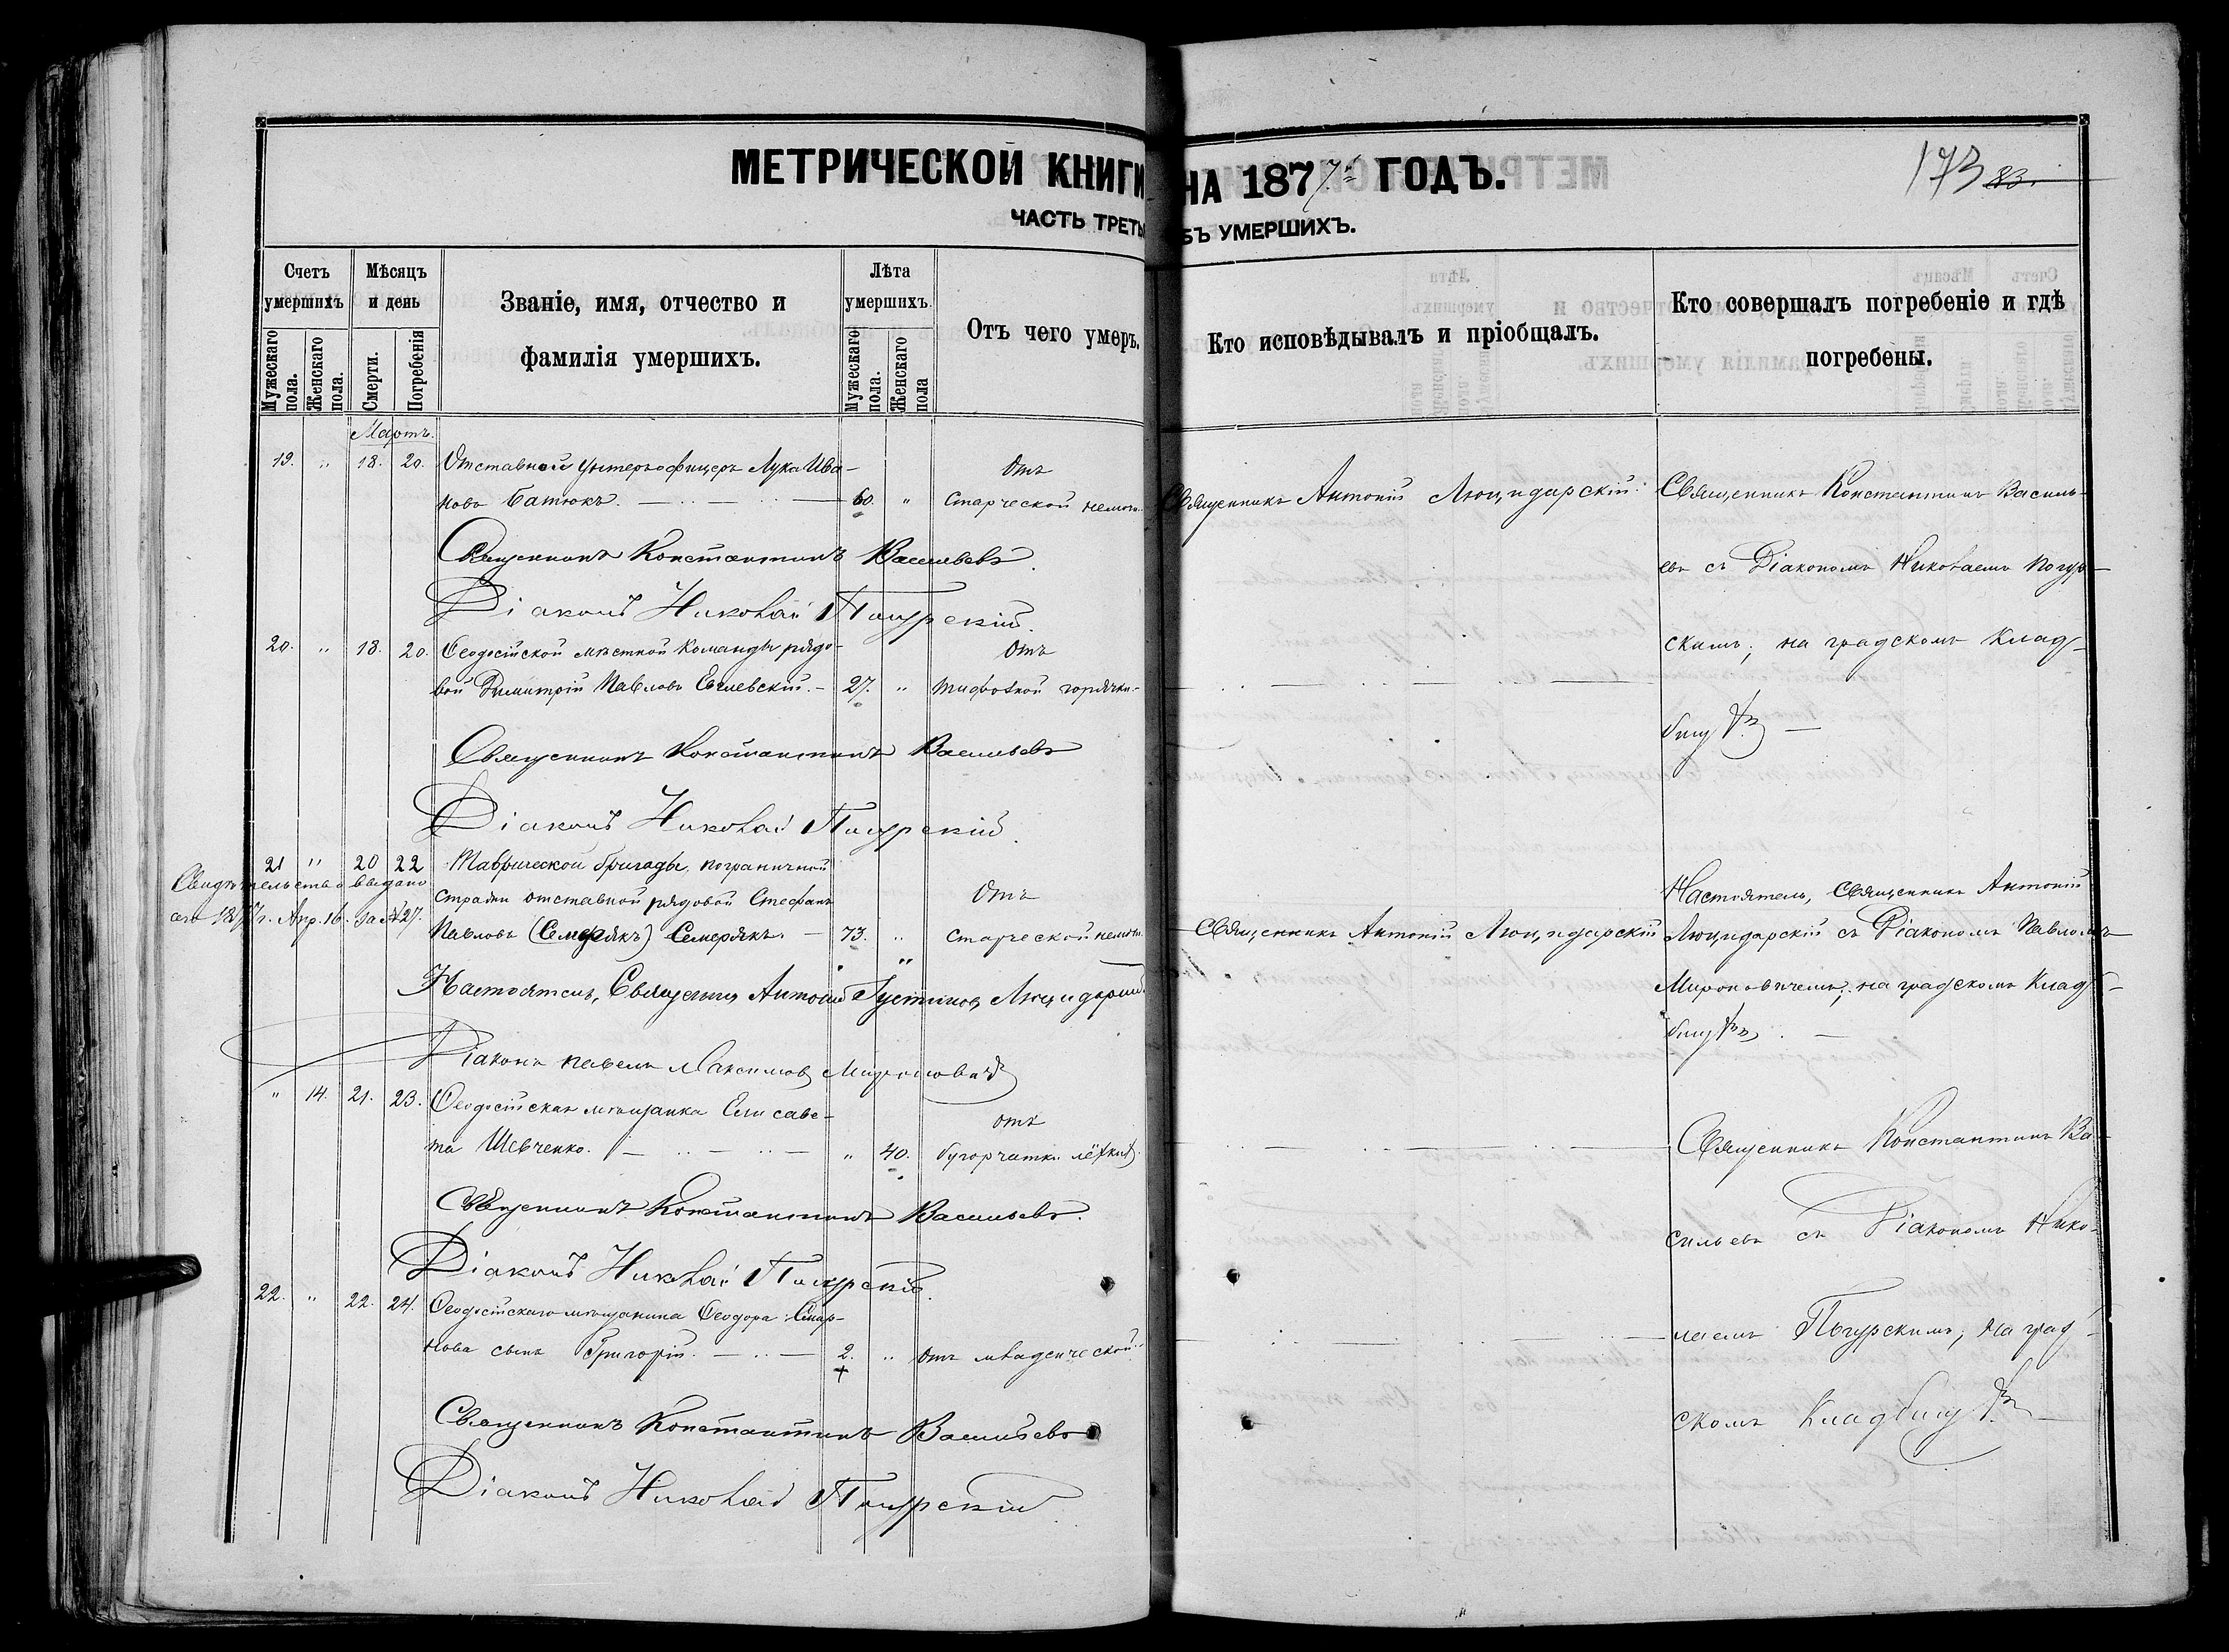 МЕТРИЧЕСКОЙ КНИГИ НА 1877й ГОДЪ.
173 83.
ЧАСТЬ ТРЕТЬ БЪ УМЕРШИХЪ.
Счетъ умершихъ
Мужескаго пола.
Женскаго пола.
Мѣсяцъ и день
Смерти.
Погребенія
Званіе, имя, отчество и
фамилія умершихъ.
Лѣта умершихъ.
Мужескаго пола.
Женскаго пола
Отъ чего умеръ.
Кто исповѣдывалъ и пріобщалъ.
Кто совершалъ погребеніе и гдѣ
погребены.
Мартъ.
19. " 18. 20. Отставной унтеръ-офицеръ Лука Ива-
новъ Батюкъ. 60. "
Отъ
Старческой немощ.
Священникъ Антоній Люцидарскій.
Священникъ Константинъ Василь-
евъ съ Діакономъ Николаемъ Погур-
скимъ, на градскомъ клад-
бищѣ
Священникъ Константинъ Васильевъ.
Діаконъ Николай Погурскій.
20. " 18. 20. Ѳеодосійской мѣстной команды рядо-
вой Димитрій Павловъ 27. "
Отъ
тифозной горячки.
Священникъ Константинъ Васильевъ
Діаконъ Николай Погурскій.
21 " 20 22 Таврической бригады, пограничной
стражи отставной рядовой Стефанъ
Павловъ (Семерякъ) Семерякъ. 73. "
Отъ
Старческой немощ.
Свидѣтельство выдано
сего 1877 г. Апр. 16. за № 27.
Священникъ Антоній Люцидарскій
Настоятель, Священникъ Антоній
Люцидарскій съ Діакономъ Павломъ
Мироновичемъ, на градскомъ клад-
бищѣ.
Настоятель, Священникъ Антоній Густиновъ Люцидарскій
Діаконъ Павелъ Максимовъ Мироновичъ
" 14. 21. 23. Ѳеодосійская мѣщанка Елисаве-
та Шевченко. " 40.
отъ
бугорчатки лёгкихъ.
Священникъ Константинъ Ва-
сильевъ съ Діакономъ Нико-
лаемъ Погурскимъ, на град-
скомъ кладбищѣ
Священникъ Константинъ Васильевъ.
Діаконъ Николай Погурскій.
22. " 22. 24. Ѳеодосійскаго мѣщанина Ѳеодора Смир-
нова сынъ Григорій. 2. " отъ младенческой
Священникъ Константинъ Васильевъ
Діаконъ Николай Погурскій